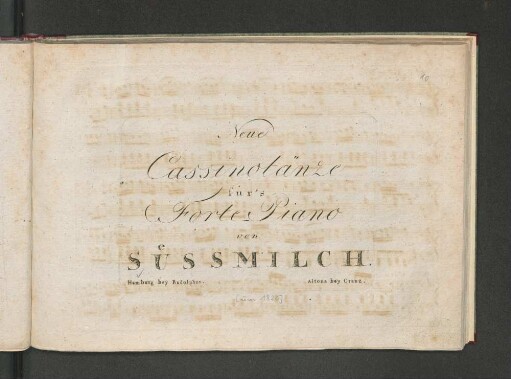 Neue
Cassinotänze
für's
Forte Piano
von
SÜSSMILCH.
Hamburg bey Rudolphus. Altona bey Cranz.